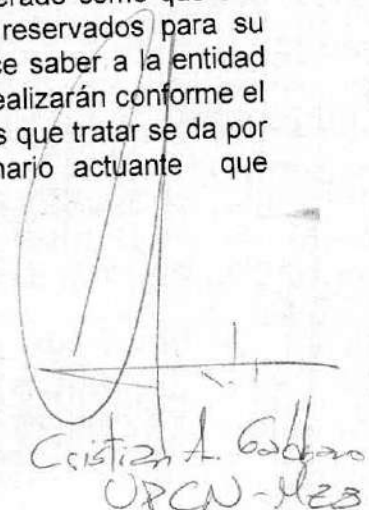 reservados para su
ce saber a la entidad
ealizarán conforme el
s que tratar se da por
nario actuante que
Cristian A.
UPCN - MZB